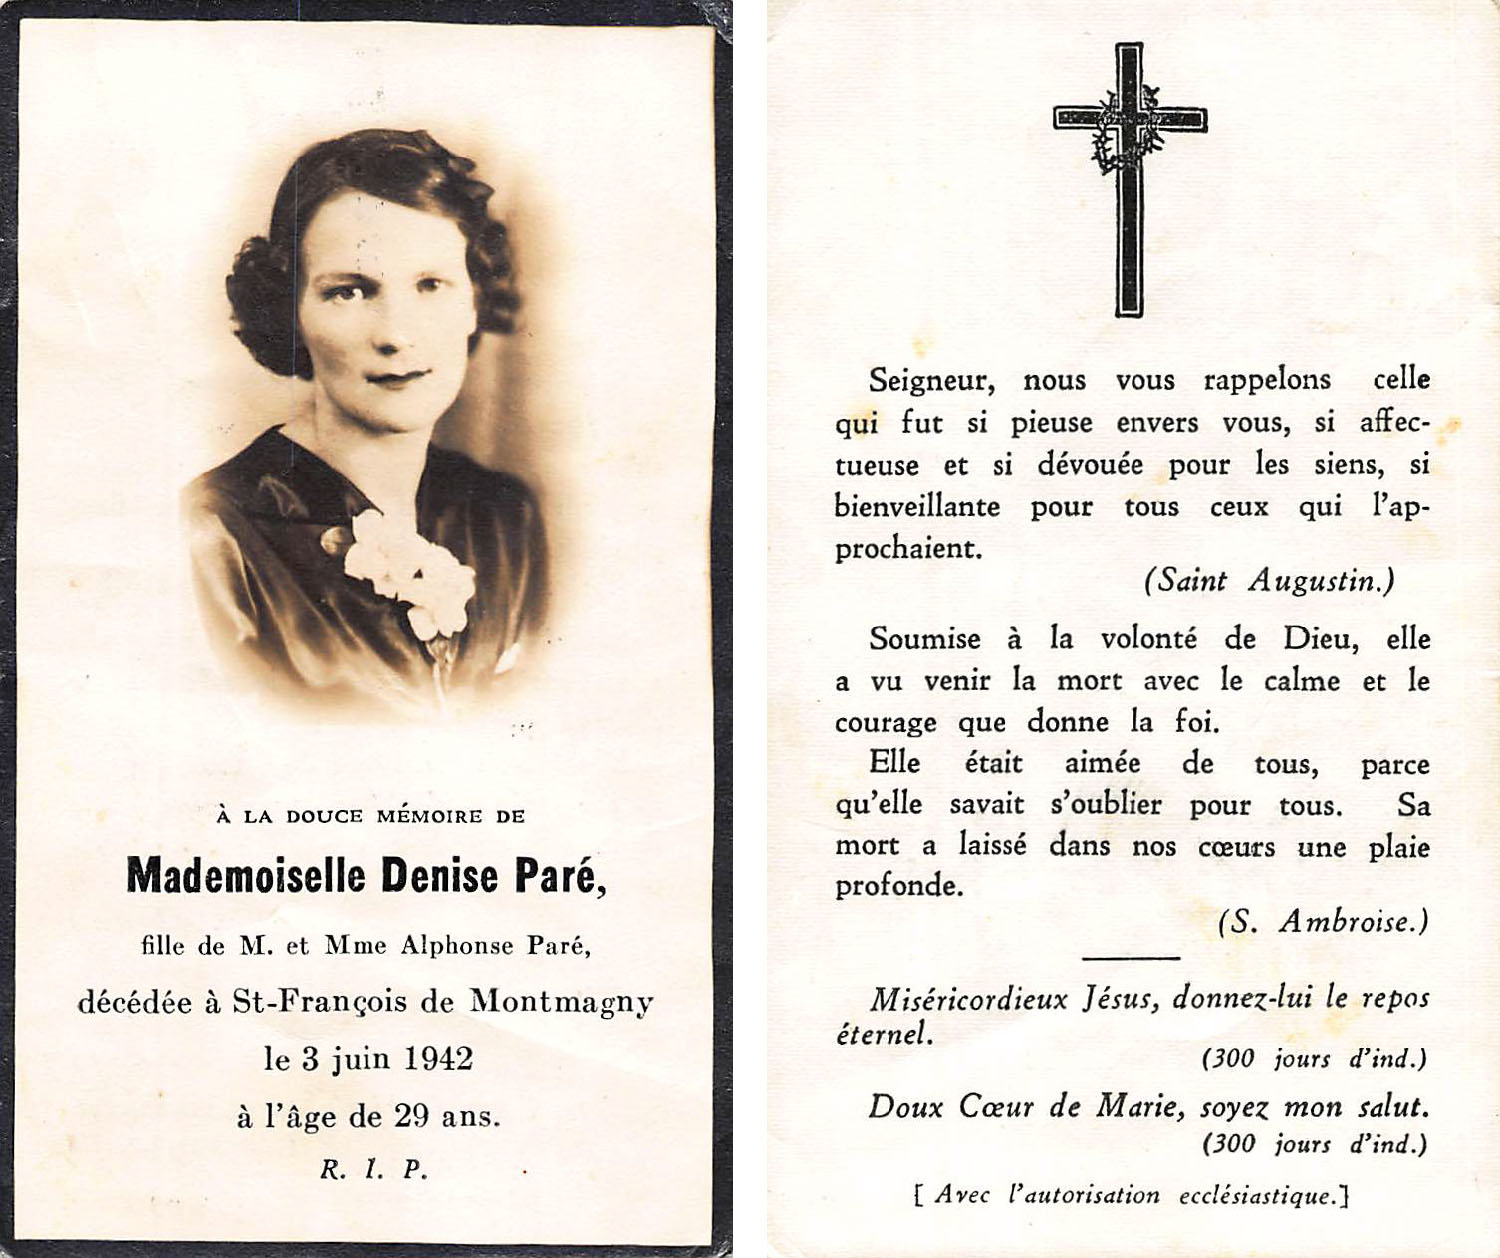 À LA DOUCE MÉMOIRE DE
Mademoiselle Denise Paré,
fille de M. et Mme Alphonse Paré,
décédée à St-François de Montmagny
le 3 juin 1942
à l'âge de 29 ans.
R. I. P.
Seigneur, nous vous rappelons celle
qui fut si pieuse envers vous, si affec-
tueuse et si dévouée pour les siens, si
bienveillante pour tous ceux qui l'ap-
prochaient.
(Saint Augustin.)
Soumise à la volonté de Dieu, elle
a vu venir la mort avec le calme et le
courage que donne la foi.
Elle était aimée de tous, parce
qu'elle savait s'oublier pour tous. Sa
mort a laissé dans nos cœurs une plaie
profonde.
(S. Ambroise.)
Miséricordieux Jésus, donnez-lui le repos
éternel.
(300 jours d'ind.)
Doux Cœur de Marie, soyez mon salut.
(300 jours d'ind.)
[ Avec l'autorisation ecclésiastique.]